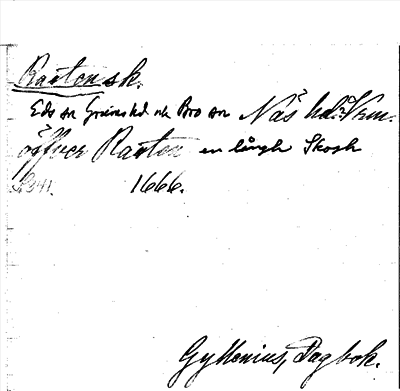 Raatensk.
Eds sn Grums hd och Bro sn Näs hd. Vrm.
öffver Raaten en långh Skogh
S. 341. 1666.
Gyllenius, Dagbok.